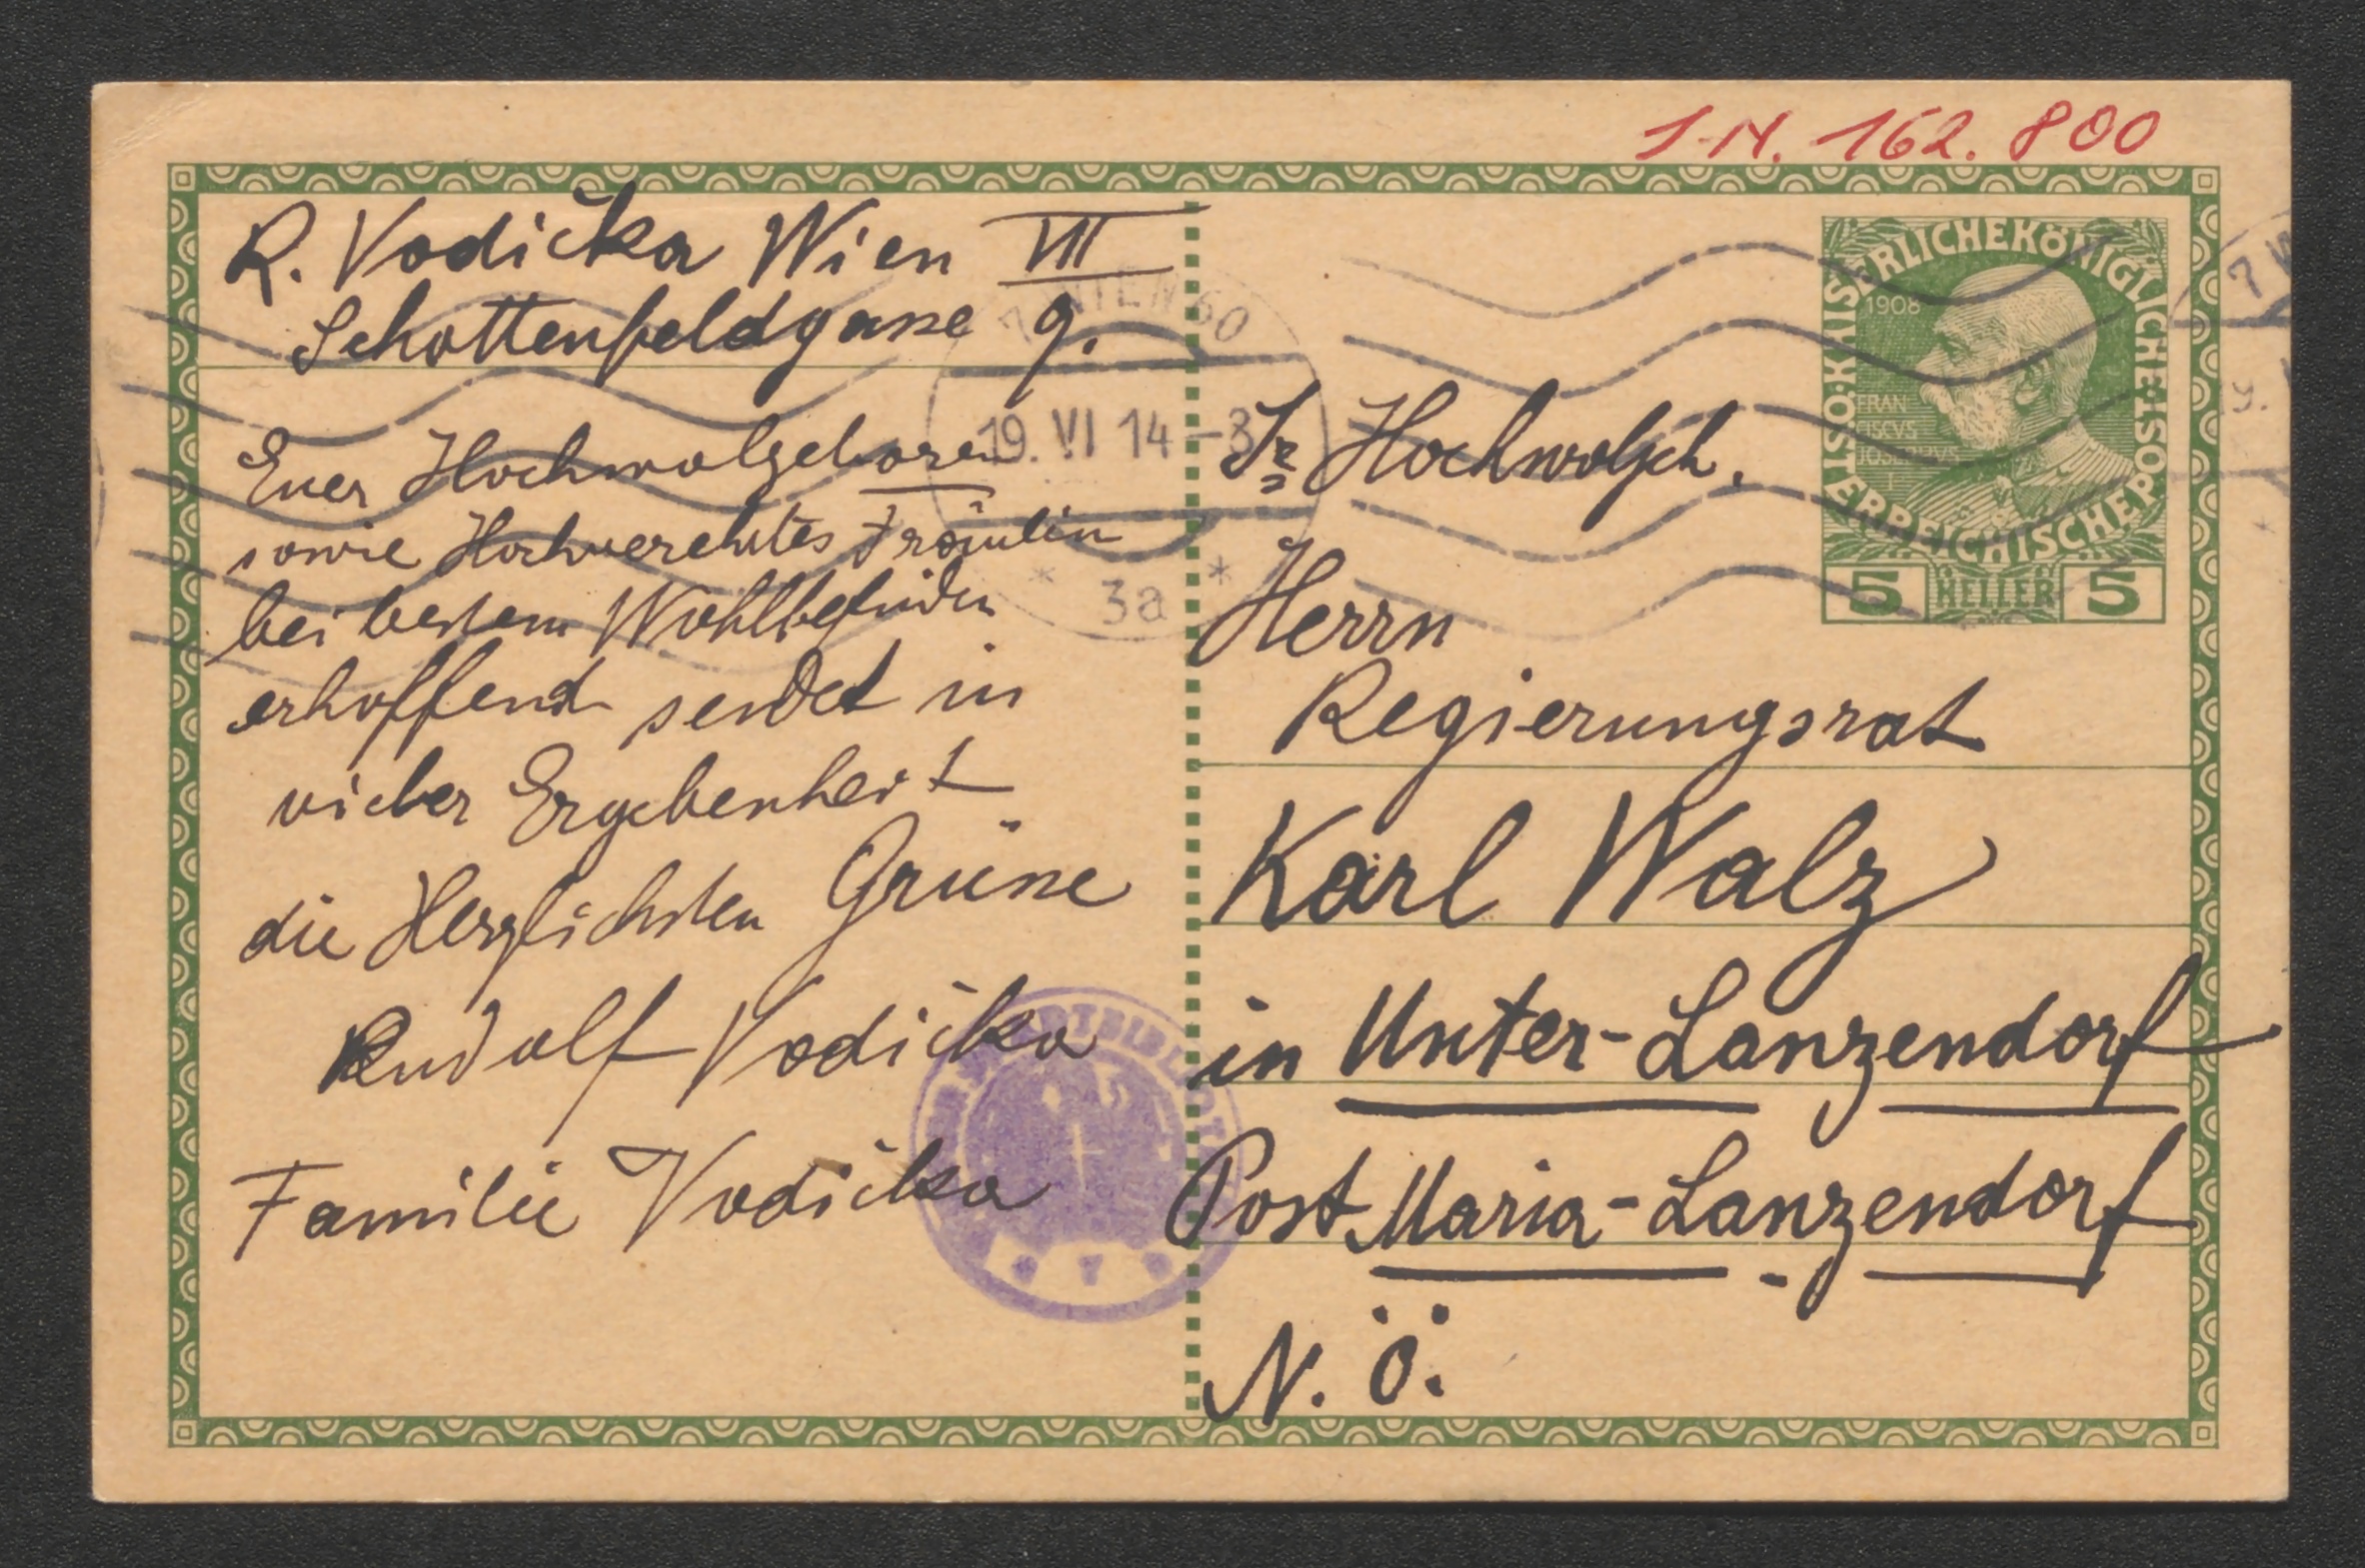 I.N. 162.800
R. Vodička Wien VII
Schottenfeldgasse 9.
Euer Hochwolgeboren
sowie Hochverehrtes Fräulin
bei bestem Wohlbefinden
erhoffend sendet in
vieler Ergebenheit
die Herzlichsten Grüsse
Rudolf Vodička
Familie Vodička
WIEN 60
19. VI 14 - 3
* 3a *
KAISERLICHE KÖNIGLICHE POST
ÖSTERREICHISCHE
1908
FRAN
CISCVS
JOSEPHVS
I
5 HELLER 5
Sr Hochwolgeb.
Herrn
Regierungsrat
Karl Walz
in Unter-Lanzendorf
Post Maria-Lanzendorf
N. Ö.